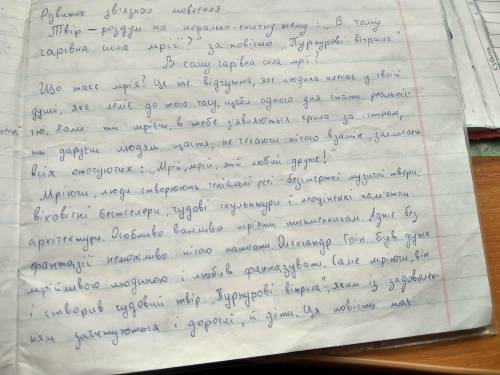 Розвиток зв'язного мовлення
Твір – роздум на морально-етичну тему: „В чому
чарівна сила мрії?" за повістю „Пурпурові вітрила"
В чому чарівна сила мрії?
Що таке мрія? Це те відчуття, яке людина плекає у своїй
душі, яке леліє до того часу, щоби одного дня стати реальніс-
тю. Коли ти мрієш, в тебе з'являються крила за спиною,
ти даруєш людям щастя, не чекаючи нічого взамін, закликаєш
всіх оточуючих: „Мрій, мрій, мій любий друже!"
Мріючи, люди створюють геніальні речі - безсмертні музичні твори,
віковічні бестселери, чудові скульптури і неоціненні пам'ятки
архітектури. Особливо важливо мріяти письменникам. Адже без
фантазії неможливо нічого написати. Олександр Грін був дуже
мрійливою людиною і любив фантазувати. Саме мріючи, він
і створив чудовий твір „Пурпурові вітрила", яким із задоволен-
ням зачитуються і дорослі, й діти. Ця повість має